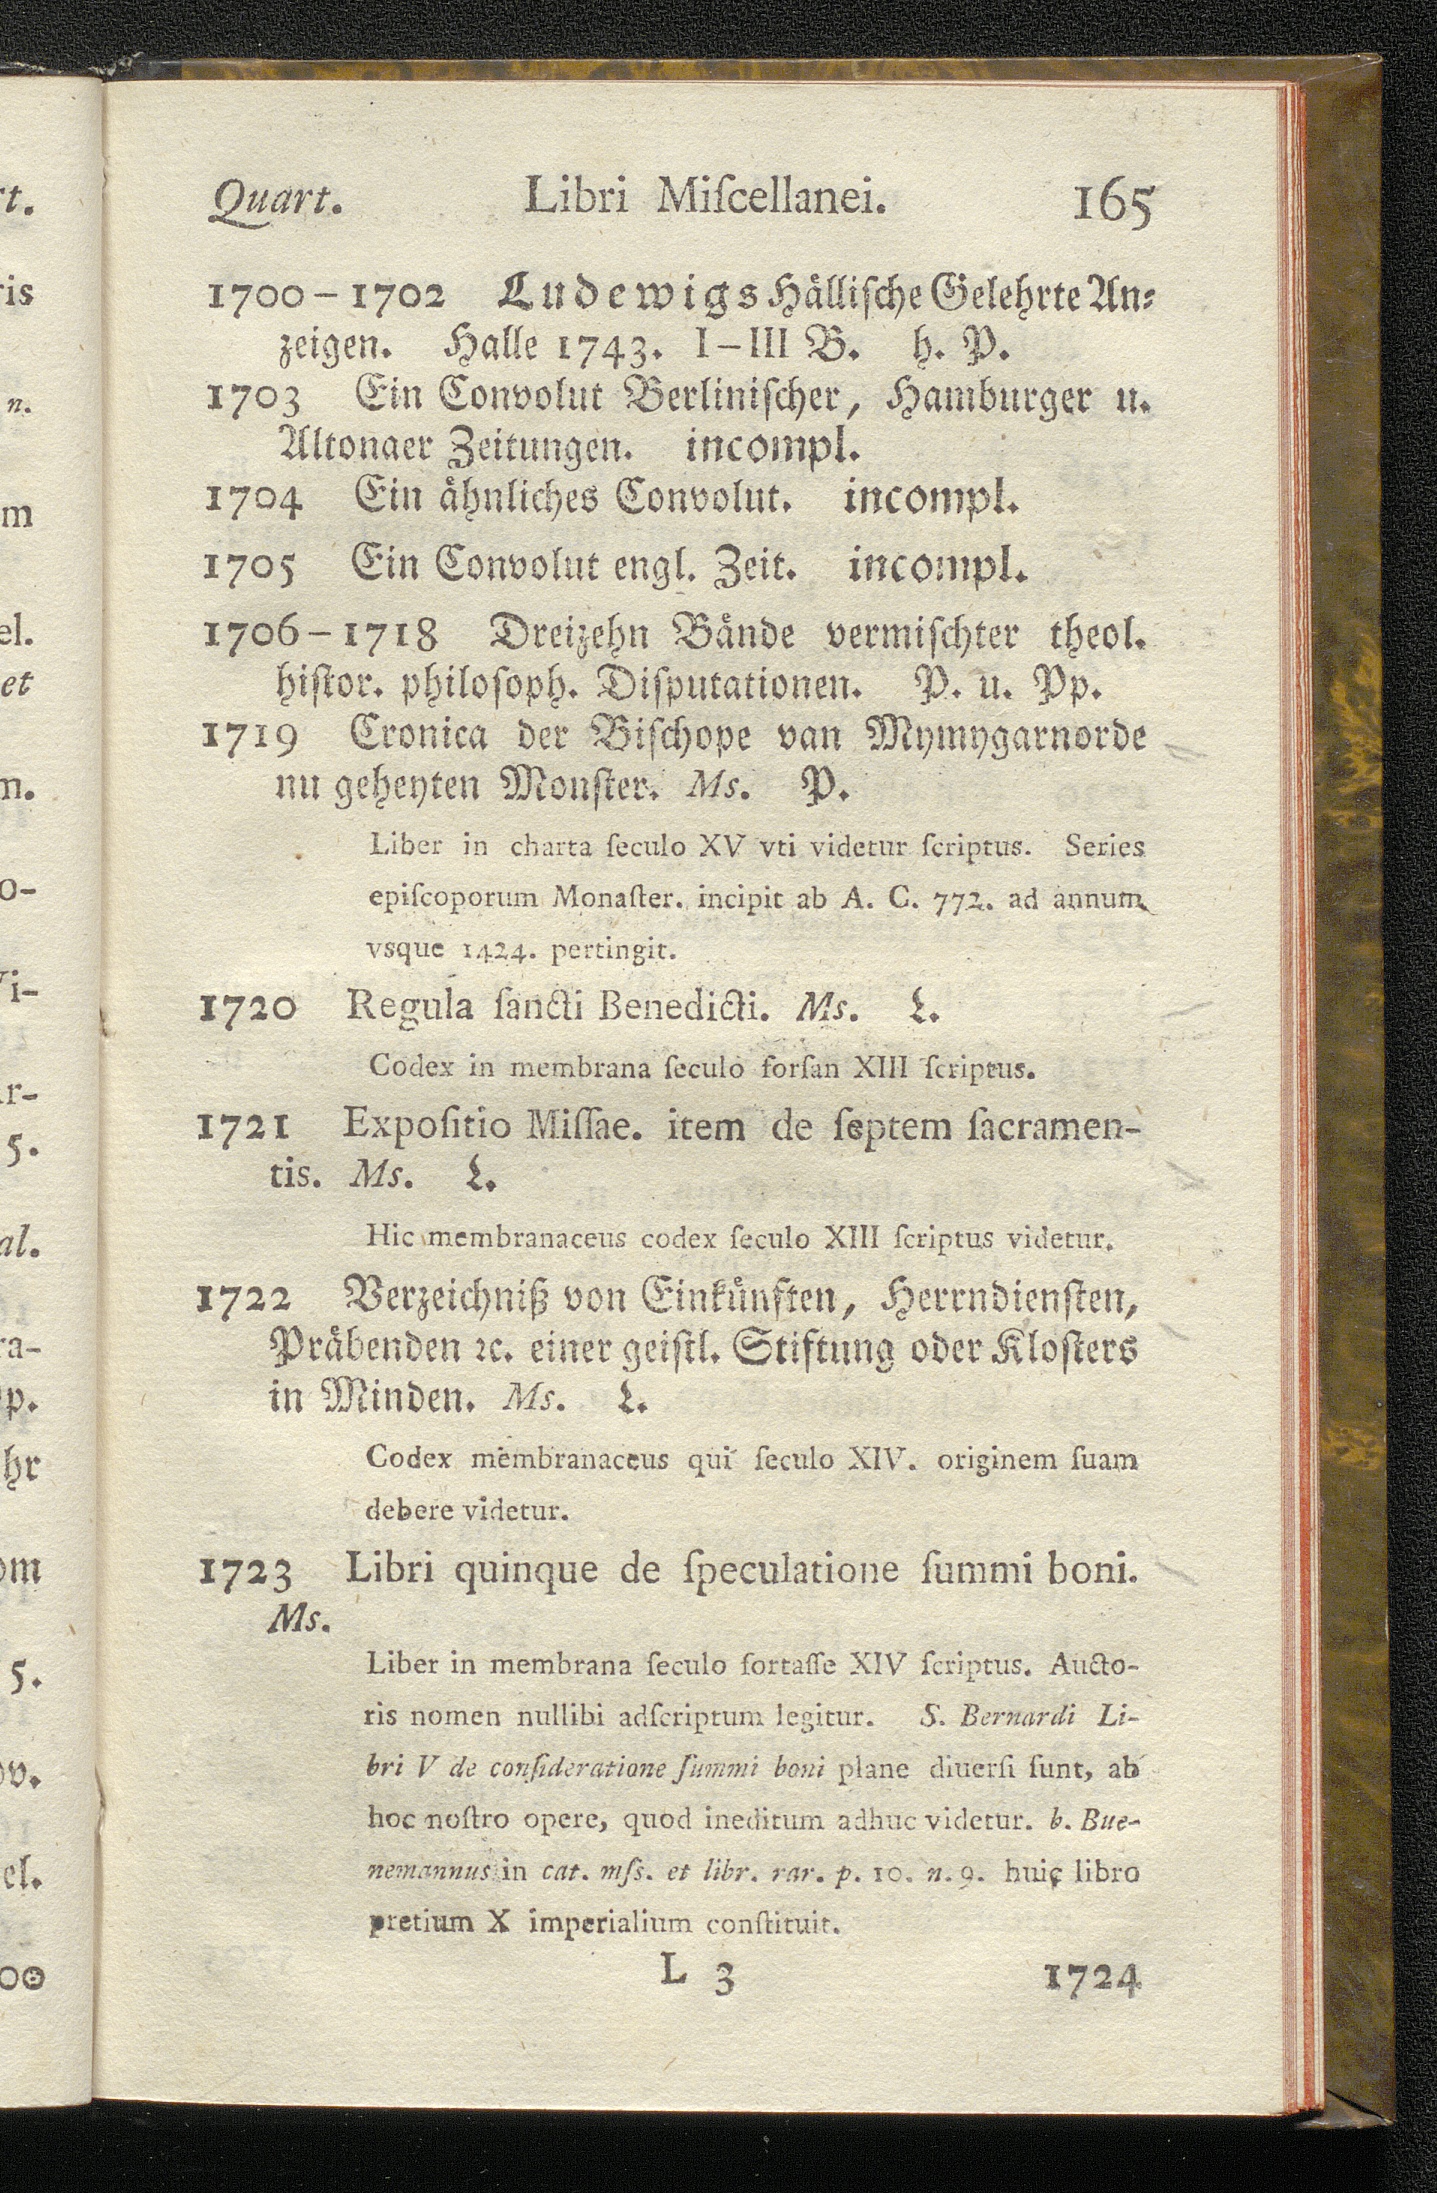 Quart. Libri Miſcellanei. 165
1700–1702 Ludewigs Hällische Gelehrte An⸗
zeigen. Halle 1743. I–III B. h. P.
1703 Ein Convolut Berliniſcher, Hamburger u.
Altonaer Zeitungen. incompl.
1704 Ein ähnliches Convolut. incompl.
1705 Ein Convolut engl. Zeit. incompl.
1706–1718 Dreizehn Bände vermiſchter theol.
hiſtor. philoſoph. Diſputationen. P. u. Pp.
1719 Cronica der Biſchope van Mymygarnorde
nu geheyten Monſter. Ms. P.
Liber in charta ſeculo XV vti videtur ſcriptus. Series
epiſcoporum Monaſter. incipit ab A. C. 772. ad annum
vsque 1424. pertingit.
1720 Regula ſancti Benedicti. Ms. L.
Codex in membrana ſeculo forſan XIII ſcriptus.
1721 Expoſitio Miſſae. item de ſeptem ſacramen-
tis. Ms. L.
Hic membranaceus codex ſeculo XIII ſcriptus videtur.
1722 Verzeichniß von Einkünften, Herrndienſten,
Präbenden ꝛc. einer geiſtl. Stiftung oder Kloſters
in Minden. Ms. L.
Codex membranaceus qui ſeculo XIV. originem ſuam
debere videtur.
1723 Libri quinque de ſpeculatione ſummi boni.
Ms.
Liber in membrana ſeculo fortaſſe XIV ſcriptus. Aucto-
ris nomen nullibi adſcriptum legitur. S. Bernardi Li-
bri V de conſideratione ſummi boni plane diuerſi ſunt, ab
hoc noſtro opere, quod ineditum adhuc videtur. b. Bue-
nemannus in cat. mſs. et libr. rar. p. 10. n. 9. huic libro
pretium X imperialium conſtituit.
L 3 1724